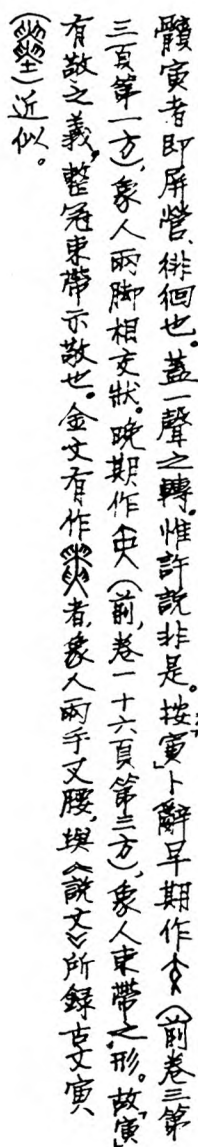 髕寅者即屏營、徘徊也。蓋一聲之轉。惟許說非是。按「寅」卜辭早期作(前卷三第
三頁第一方),象人兩脚相交狀。晚期作(前,卷一十六頁第三方),象人束帶之形。故「寅」
有敬之義,整冠束帶示敬也。金文有作者,象人兩手叉腰,與《說文》所録古文寅
()近似。